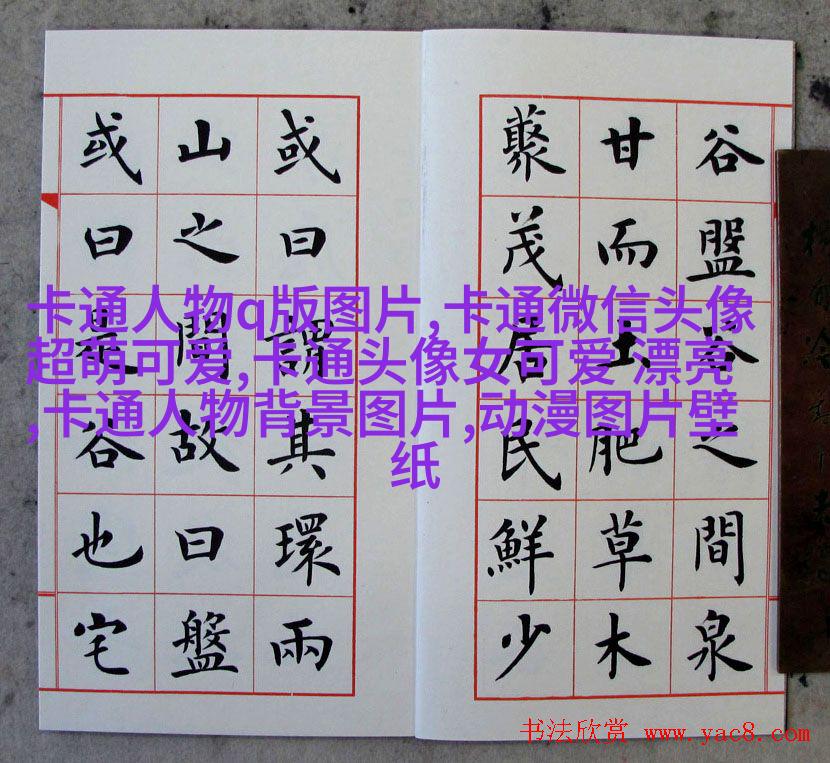 谷盤谷之間泉
甘而土肥草木
藂茂居民鮮少
或曰謂其環兩
山之間故曰盤
或曰是谷也宅
卡通人物q版图片,卡通微信头像
超萌可爱,卡通头像女可爱 漂亮
,卡通人物背景图片,动漫图片壁
纸
书法欣赏 www.yac8.com